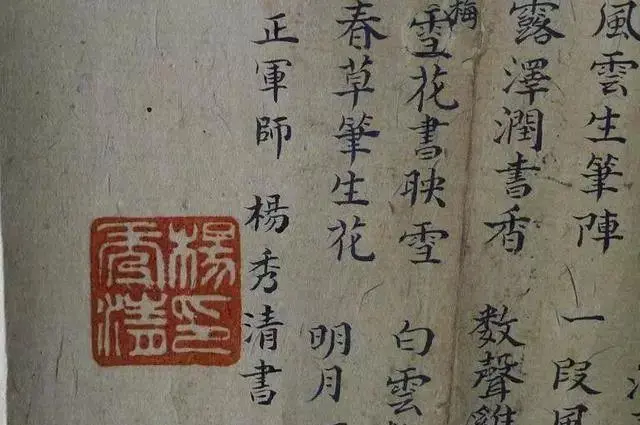 風雲生筆陣 一段風
露澤潤書香 數聲雞
梅
雪花書映雪 白雲
春草筆生花 明月
正軍師 楊秀清書
楊秀清印